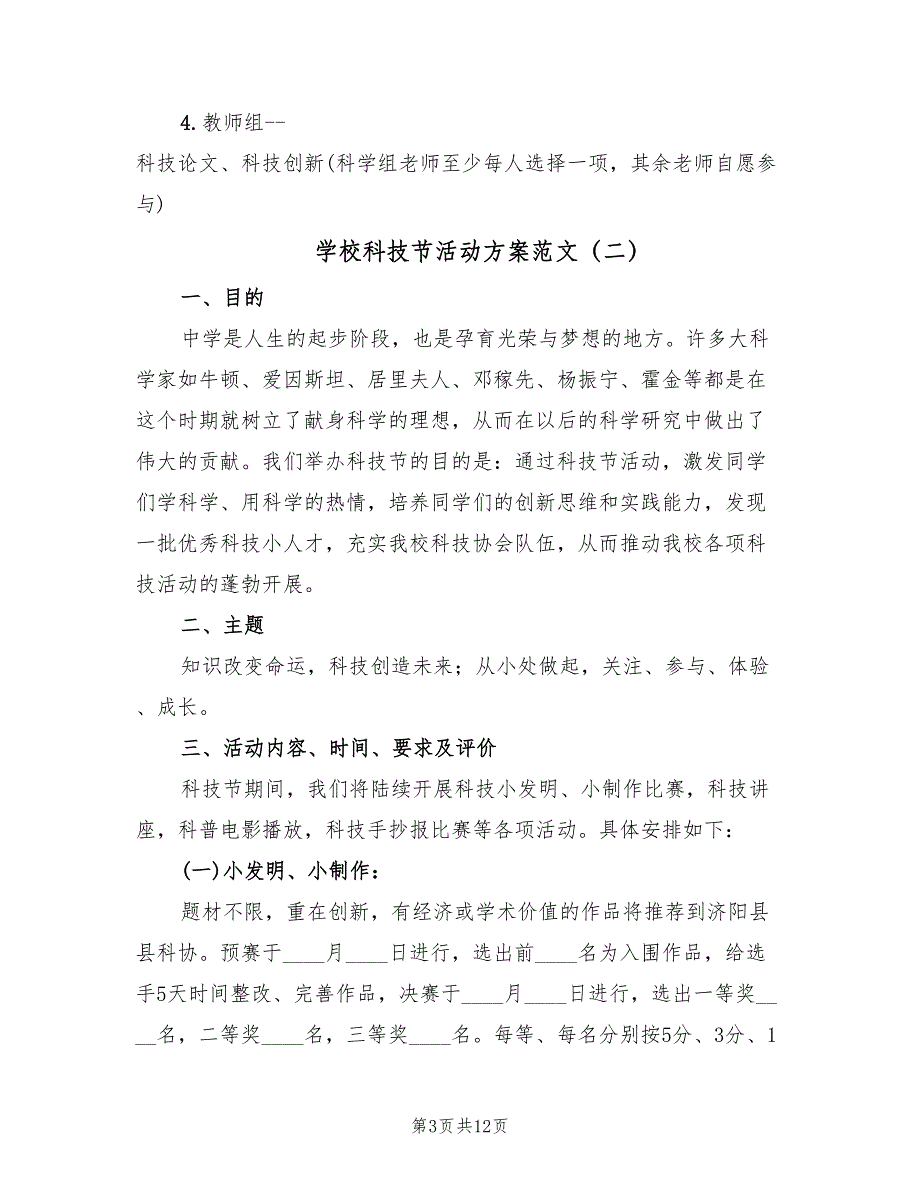 4.教师组--
科技论文、科技创新(科学组老师至少每人选择一项，其余老师自愿参
与)
学校科技节活动方案范文（二）
一、目的
中学是人生的起步阶段，也是孕育光荣与梦想的地方。许多大科
学家如牛顿、爱因斯坦、居里夫人、邓稼先、杨振宁、霍金等都是在
这个时期就树立了献身科学的理想，从而在以后的科学研究中做出了
伟大的贡献。我们举办科技节的目的是：通过科技节活动，激发同学
们学科学、用科学的热情，培养同学们的创新思维和实践能力，发现
一批优秀科技小人才，充实我校科技协会队伍，从而推动我校各项科
技活动的蓬勃开展。
二、主题
知识改变命运，科技创造未来；从小处做起，关注、参与、体验
、成长。
三、活动内容、时间、要求及评价
科技节期间，我们将陆续开展科技小发明、小制作比赛，科技讲
座，科普电影播放，科技手抄报比赛等各项活动。具体安排如下：
(一)小发明、小制作：
题材不限，重在创新，有经济或学术价值的作品将推荐到济阳县
县科协。预赛于____月____日进行，选出前____名为入围作品，给选
手5天时间整改、完善作品，决赛于____月____日进行，选出一等奖__
__名，二等奖____名，三等奖____名。每等、每名分别按5分、3分、1
第3页共12页